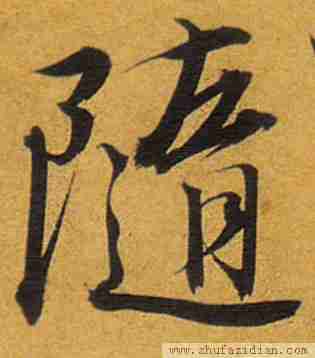 隨
www.zhufazidian.com